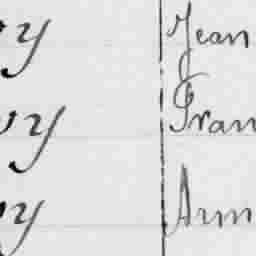 y Jean
y Fran
y Arm